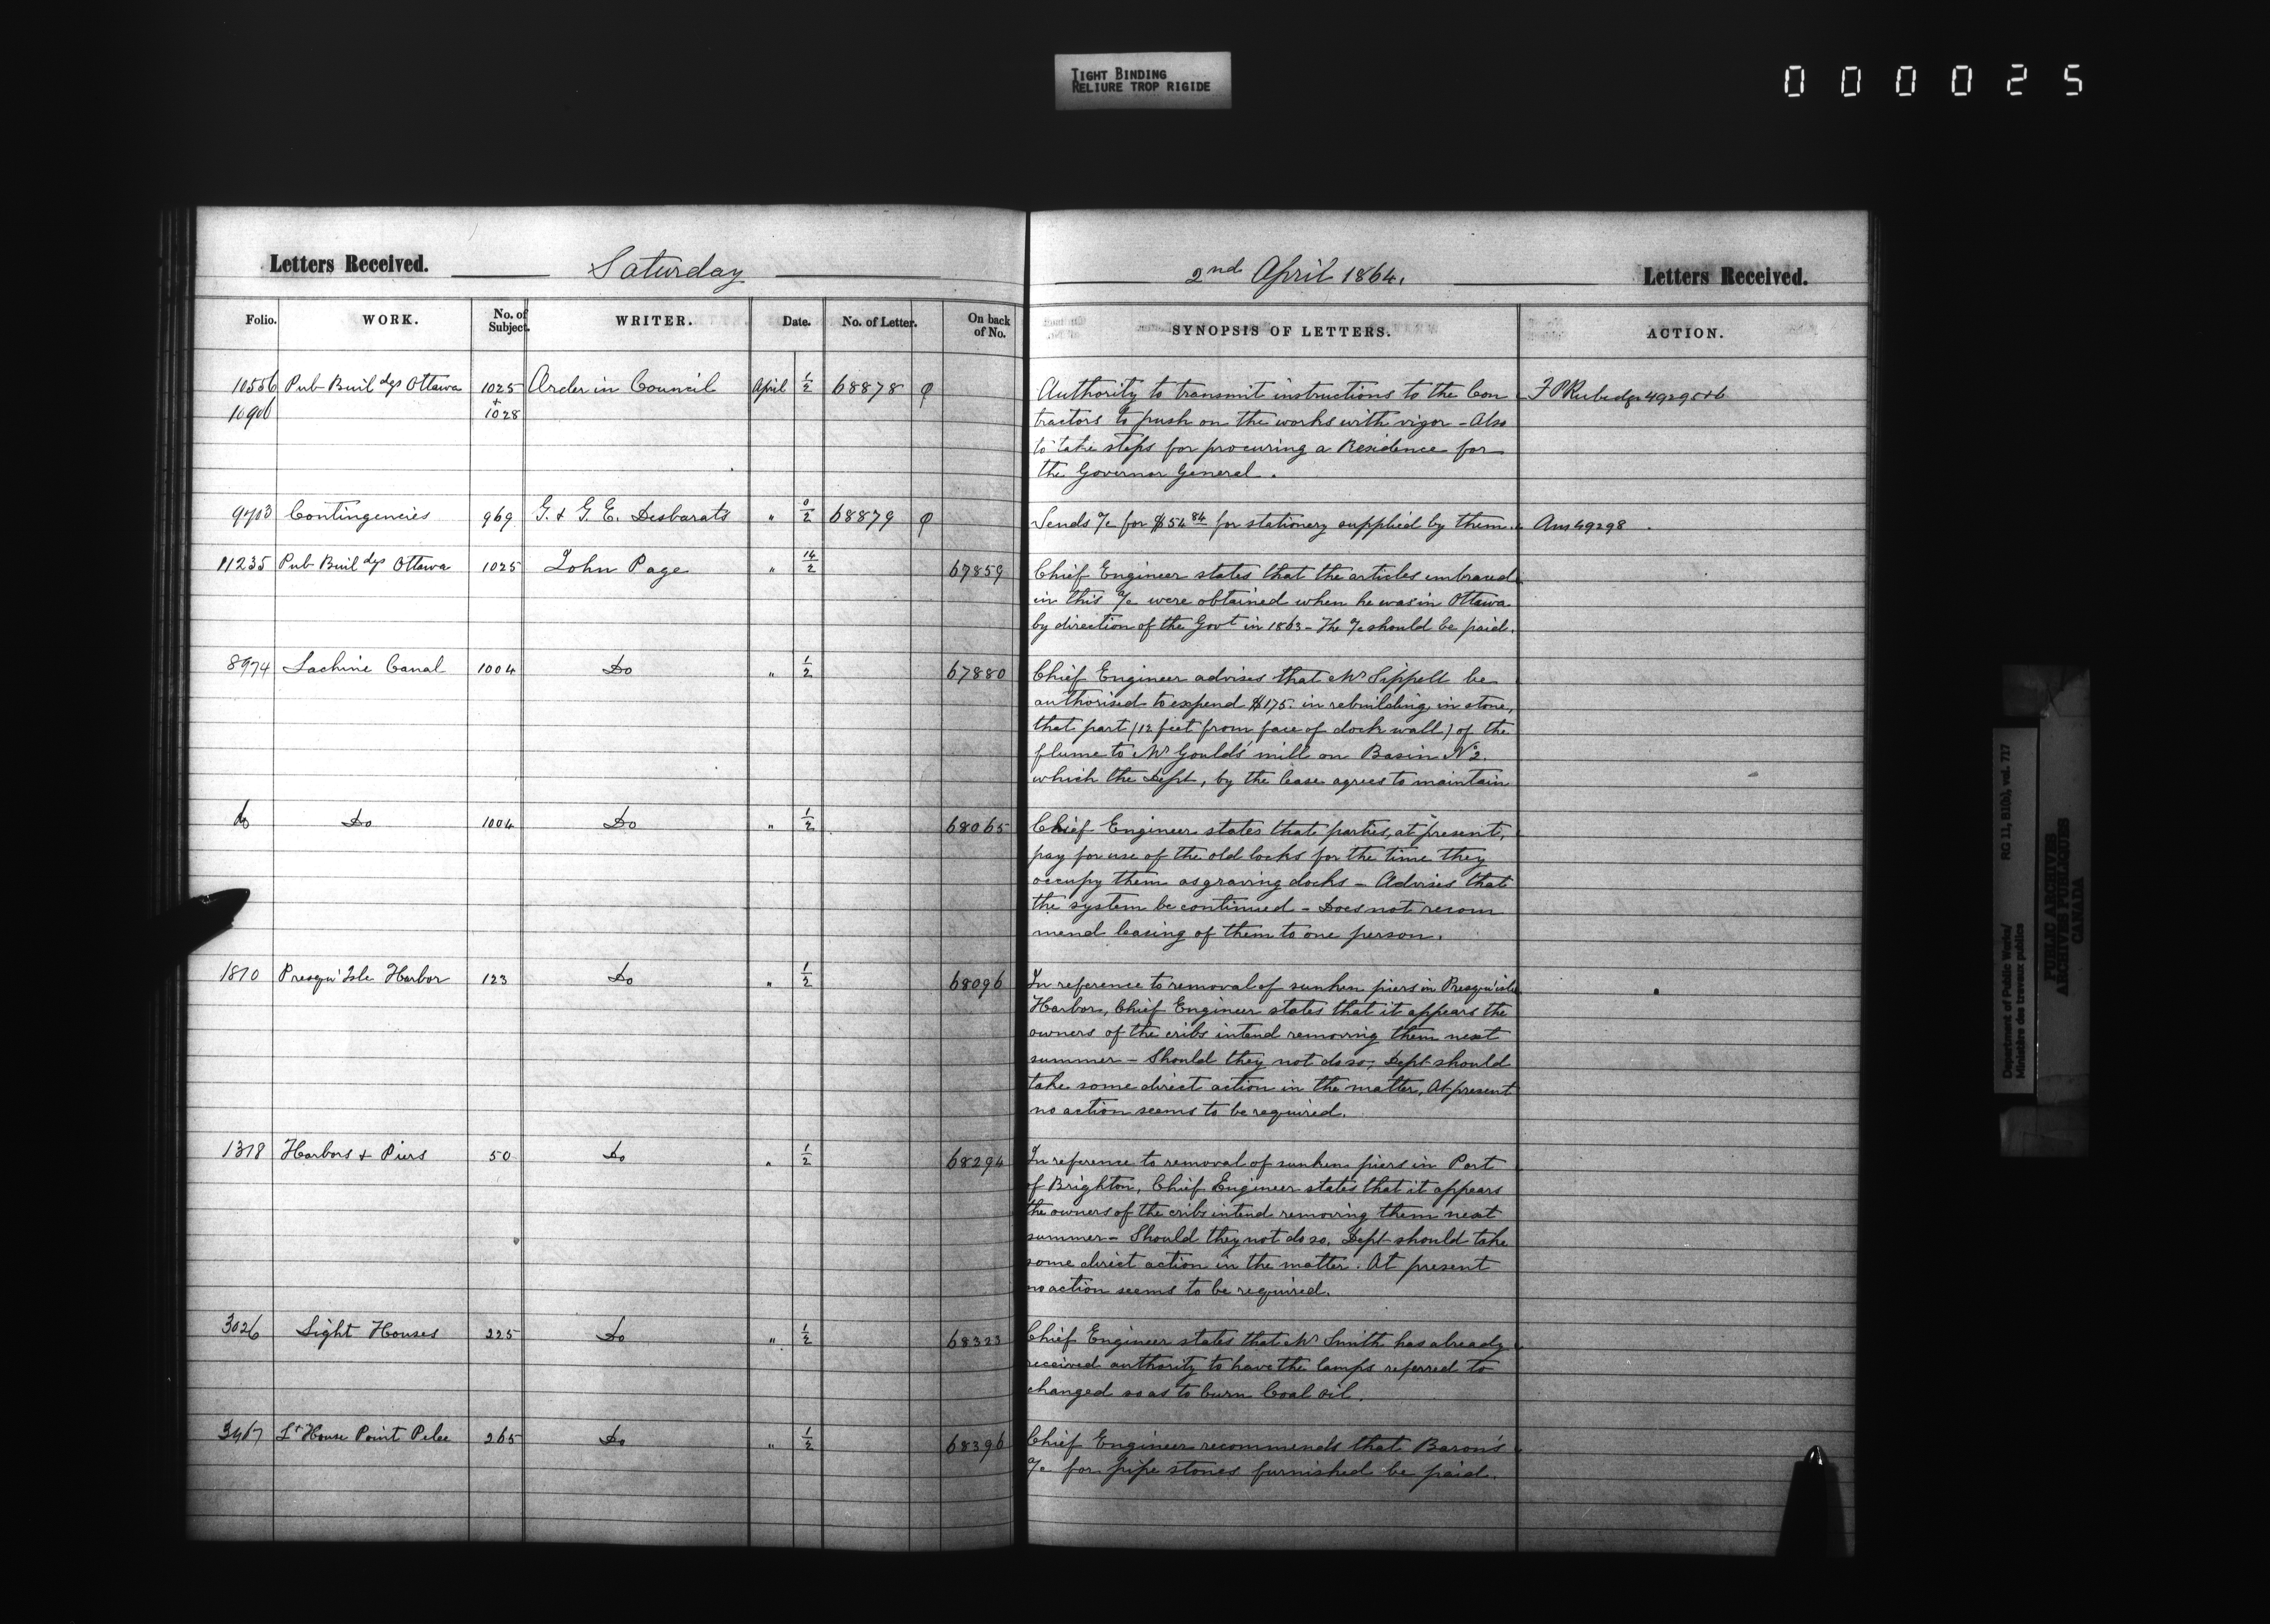 TIGHT BINDING
RELIURE TROP RIGIDE
000025
Letters Received. Saturday
Folio. WORK. No. of Subject. WRITER. Date. No. of Letter. On back of No.
10556 Pub Buildgs Ottawa 1025 Order in Council April 1/2 68878 φ
10906 + 1028
9703 Contingencies 969 G. & G. E. Desbarats " 0/2 68879 φ
11235 Pub Buildgs Ottawa 1025 John Page " 14/2 67859
8974 Lachine Canal 1004 Do " 1/2 67880
do Do 1004 Do " 1/2 68065
1810 Presqu'Isle Harbor 123 Do " 1/2 68096
1318 Harbors & Piers 50 Do " 1/2 68294
3026 Light Houses 225 Do " 1/2 68323
3467 Lt House Point Pelee 265 Do " 1/2 68396
2nd April 1864. Letters Received.
SYNOPSIS OF LETTERS. ACTION.
Authority to transmit instructions to the Con F P Rubidge 49295+6
tractors to push on the works with vigor - Also
to take steps for procuring a Residence for
the Governor General.
Sends a/c for $54 84 for stationery supplied by them. Ans 49298
Chief Engineer states that the articles embraced
in this a/c were obtained when he was in Ottawa
by direction of the Govt in 1863 - The a/c should be paid.
Chief Engineer advises that Mr Sippell be
authorised to expend $175. in rebuilding, in stone,
that part (12 feet from face of dock wall) of the
flume to Mr Gould's mill on Basin No 2.
which the Dept, by the lease agrees to maintain
Chief Engineer states that parties, at present,
pay for use of the old locks for the time they
occupy them as graving docks - Advises that
the system be continued - Does not recom
mend leasing of them to one person.
In reference to removal of sunken piers in Presqu'isle
Harbor, Chief Engineer states that it appears the
owners of the cribs intend removing them next
summer - Should they not do so, Dept should
take some direct action in the matter, At present
no action seems to be required.
In reference to removal of sunken piers in Port
of Brighton, Chief Engineer states that it appears
the owners of the cribs intend removing them next
summer - Should they not do so, Dept should take
some direct action in the matter. At present
no action seems to be required.
Chief Engineer states that Mr Smith has already
received authority to have the lamps referred to
changed so as to burn Coal oil.
Chief Engineer recommends that Baron's
a/c for pipe stones furnished be paid.
Department of Public Works/ RG 11, B1(b), vol. 717
Ministère des travaux publics
PUBLIC ARCHIVES
ARCHIVES PUBLIQUES
CANADA